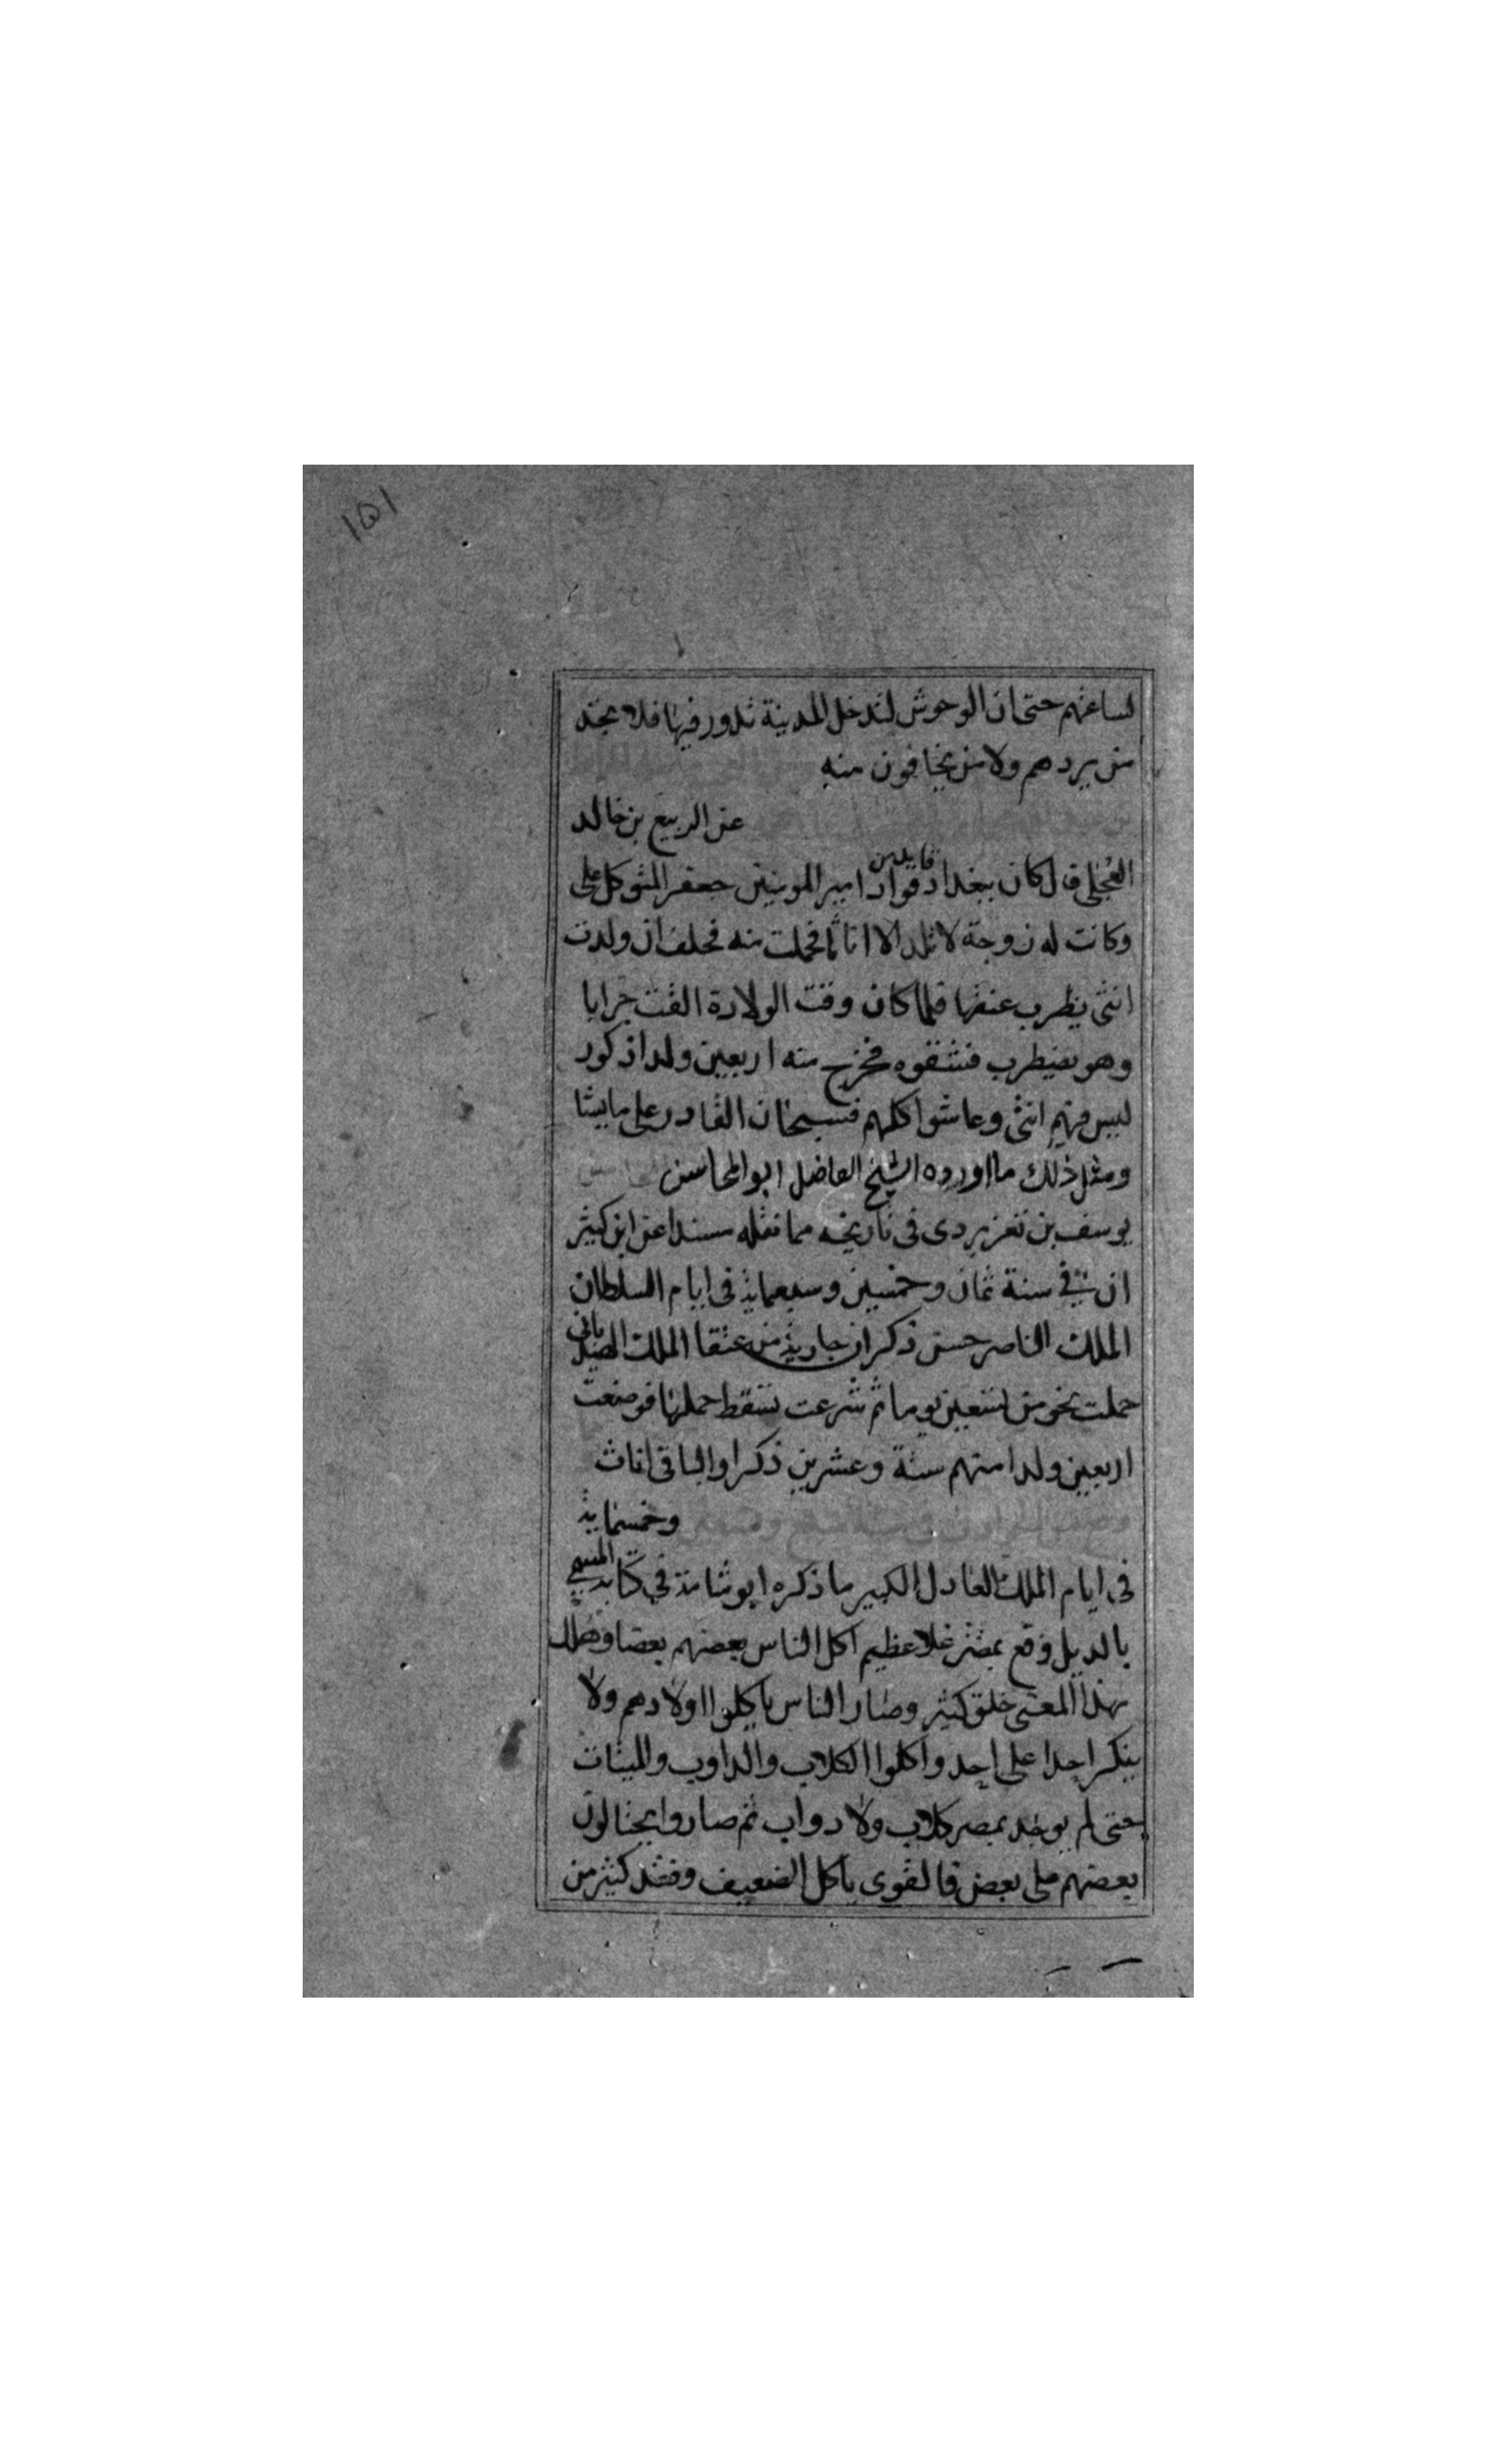 ١٥١
لساعتهم حتى ان الوحوش لتدخل المدينة تدور فيها فلا تجد
من يردهم ولا من يخافون منه
عن الربيع بن خالد
العجلى قال كان ببغداد قايد من قواد امير المومنين جعفر المتوكل على
وكانت له زوجة لا تلد الا اناثا فحملت منه فحلف ان ولدت
انثى يظرب عنقها فلما كان وقت الولادة القت جرابا
وهو يضطرب فشقوه فخرج منه اربعين ولدا ذكور
ليس فيهم انثى وعاشوا كلهم فسبحان القادر على ما يشا
ومثل ذلك ما اورده الشيخ الفاضل ابو المحاسن
يوسف بن تغرى بردى فى تاريخه مما نقله مسندا عن ابن كثير
ان فى سنة ثمان وخمسين وسبعماية فى ايام السلطان
الملك الناصر حسن ذكر ان جارية من عتقا الملك
حملت نحو من تسعين يوما ثم شرعت تسقط حملها فوضعت
اربعين ولدا منهم ستة وعشرين ذكرا والباقى اناث
وخمسماية
فى ايام الملك العادل الكبير ما ذكره ابو شامة فى كتابه المسمى
بالديل وقع بمصر غلا عظيم اكل الناس بعضهم بعضا وهلك
بهذا المعنى خلق كثير وصار الناس ياكلوا اولادهم ولا
ينكر احدا على احد واكلوا الكلاب والداوب والميتات
حتى لم يوجد بمصر كلاب ولا دواب ثم صاروا يحتالون
بعضهم على بعض فالقوى ياكل الضعيف وفقد كثير من